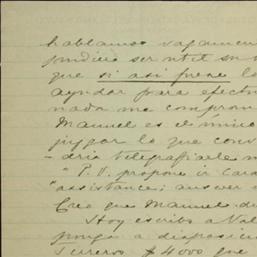 hablamos vagamen
pudiera ser útil su
que si así fuese lo
ayudar para efectu
nada me comprom
Manuel es el único
juzgar lo que conv
dría telegrafiarle
"P.V. propone ir Cara
"assistance; answer
Creo que Manuel de
Hoy escribo a Val
ponga a disposició
Terrero $4000 que